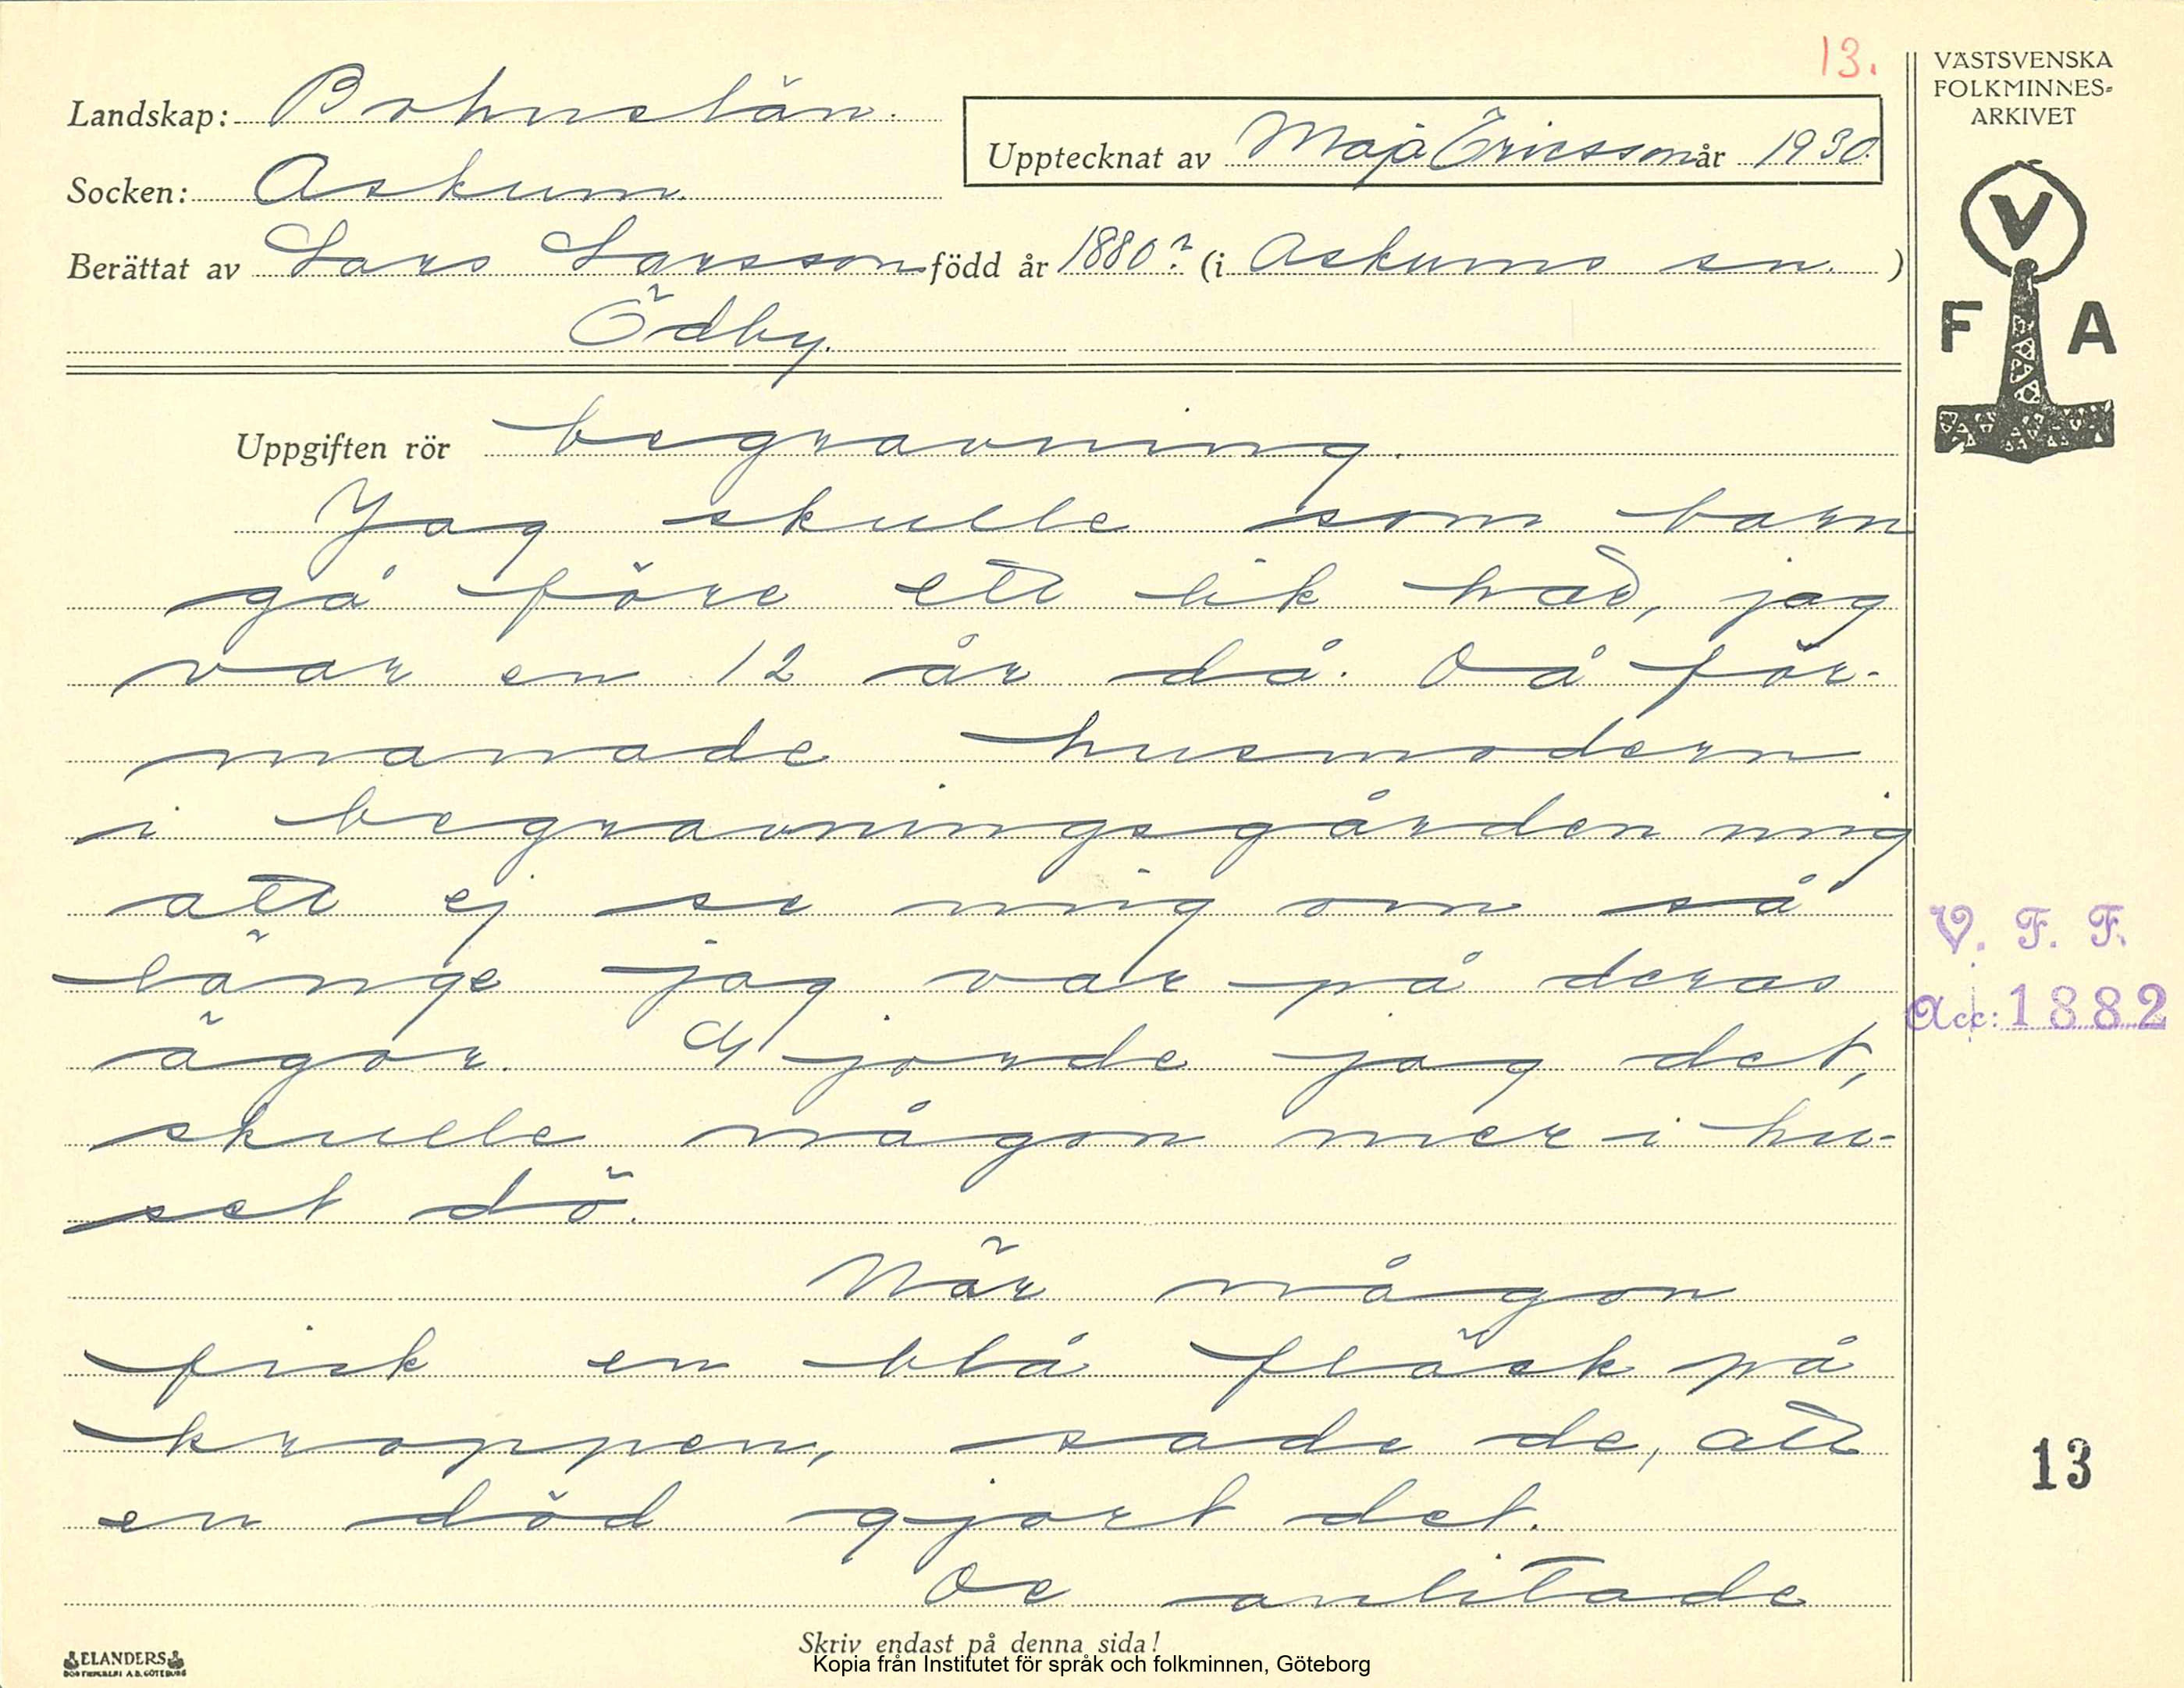 13.
VÄSTSVENSKA
FOLKMINNES=
ARKIVET
Landskap: Bohuslän.
Upptecknat av Maja Ericsson år 1930.
Socken: Askum.
Berättat av Lars Larsson född år 1880? (i Askums sn. )
Ödby.
V
F A
Uppgiften rör begravning.
Jag skulle som barn
gå före ett lik häd, jag
var en 12 år då. Då för-
manade husmodern
i begravningsgården mig
att ej se mig om så
länge jag var på deras
ägor. Gjorde jag det,
skulle någon mer i hu-
set dö.
När någon
fick en blå fläck på
kroppen, sade de, att
en död gjort det.
De anlitade
V. F. F.
Acc: 1882
13
Skriv endast på denna sida!
ELANDERS
Kopia från Institutet för språk och folkminnen, Göteborg